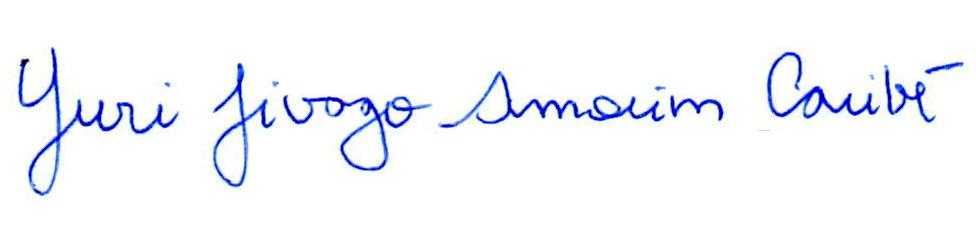 Yuri Jivago Amorim Caribé